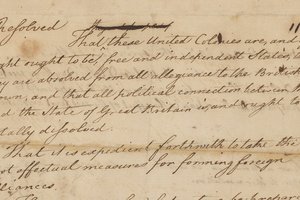 Resolved
That these United Colonies are, and
ght ought to be, free and independent States, t
y are absolved from all allegiance to the Brit
wn, and that all political connection between th
d the State of G. eat Britain is, and ought to
tally dissolved.
That it is expedient forthwith to take the
ost effectual measures for forming foreign
lliances.